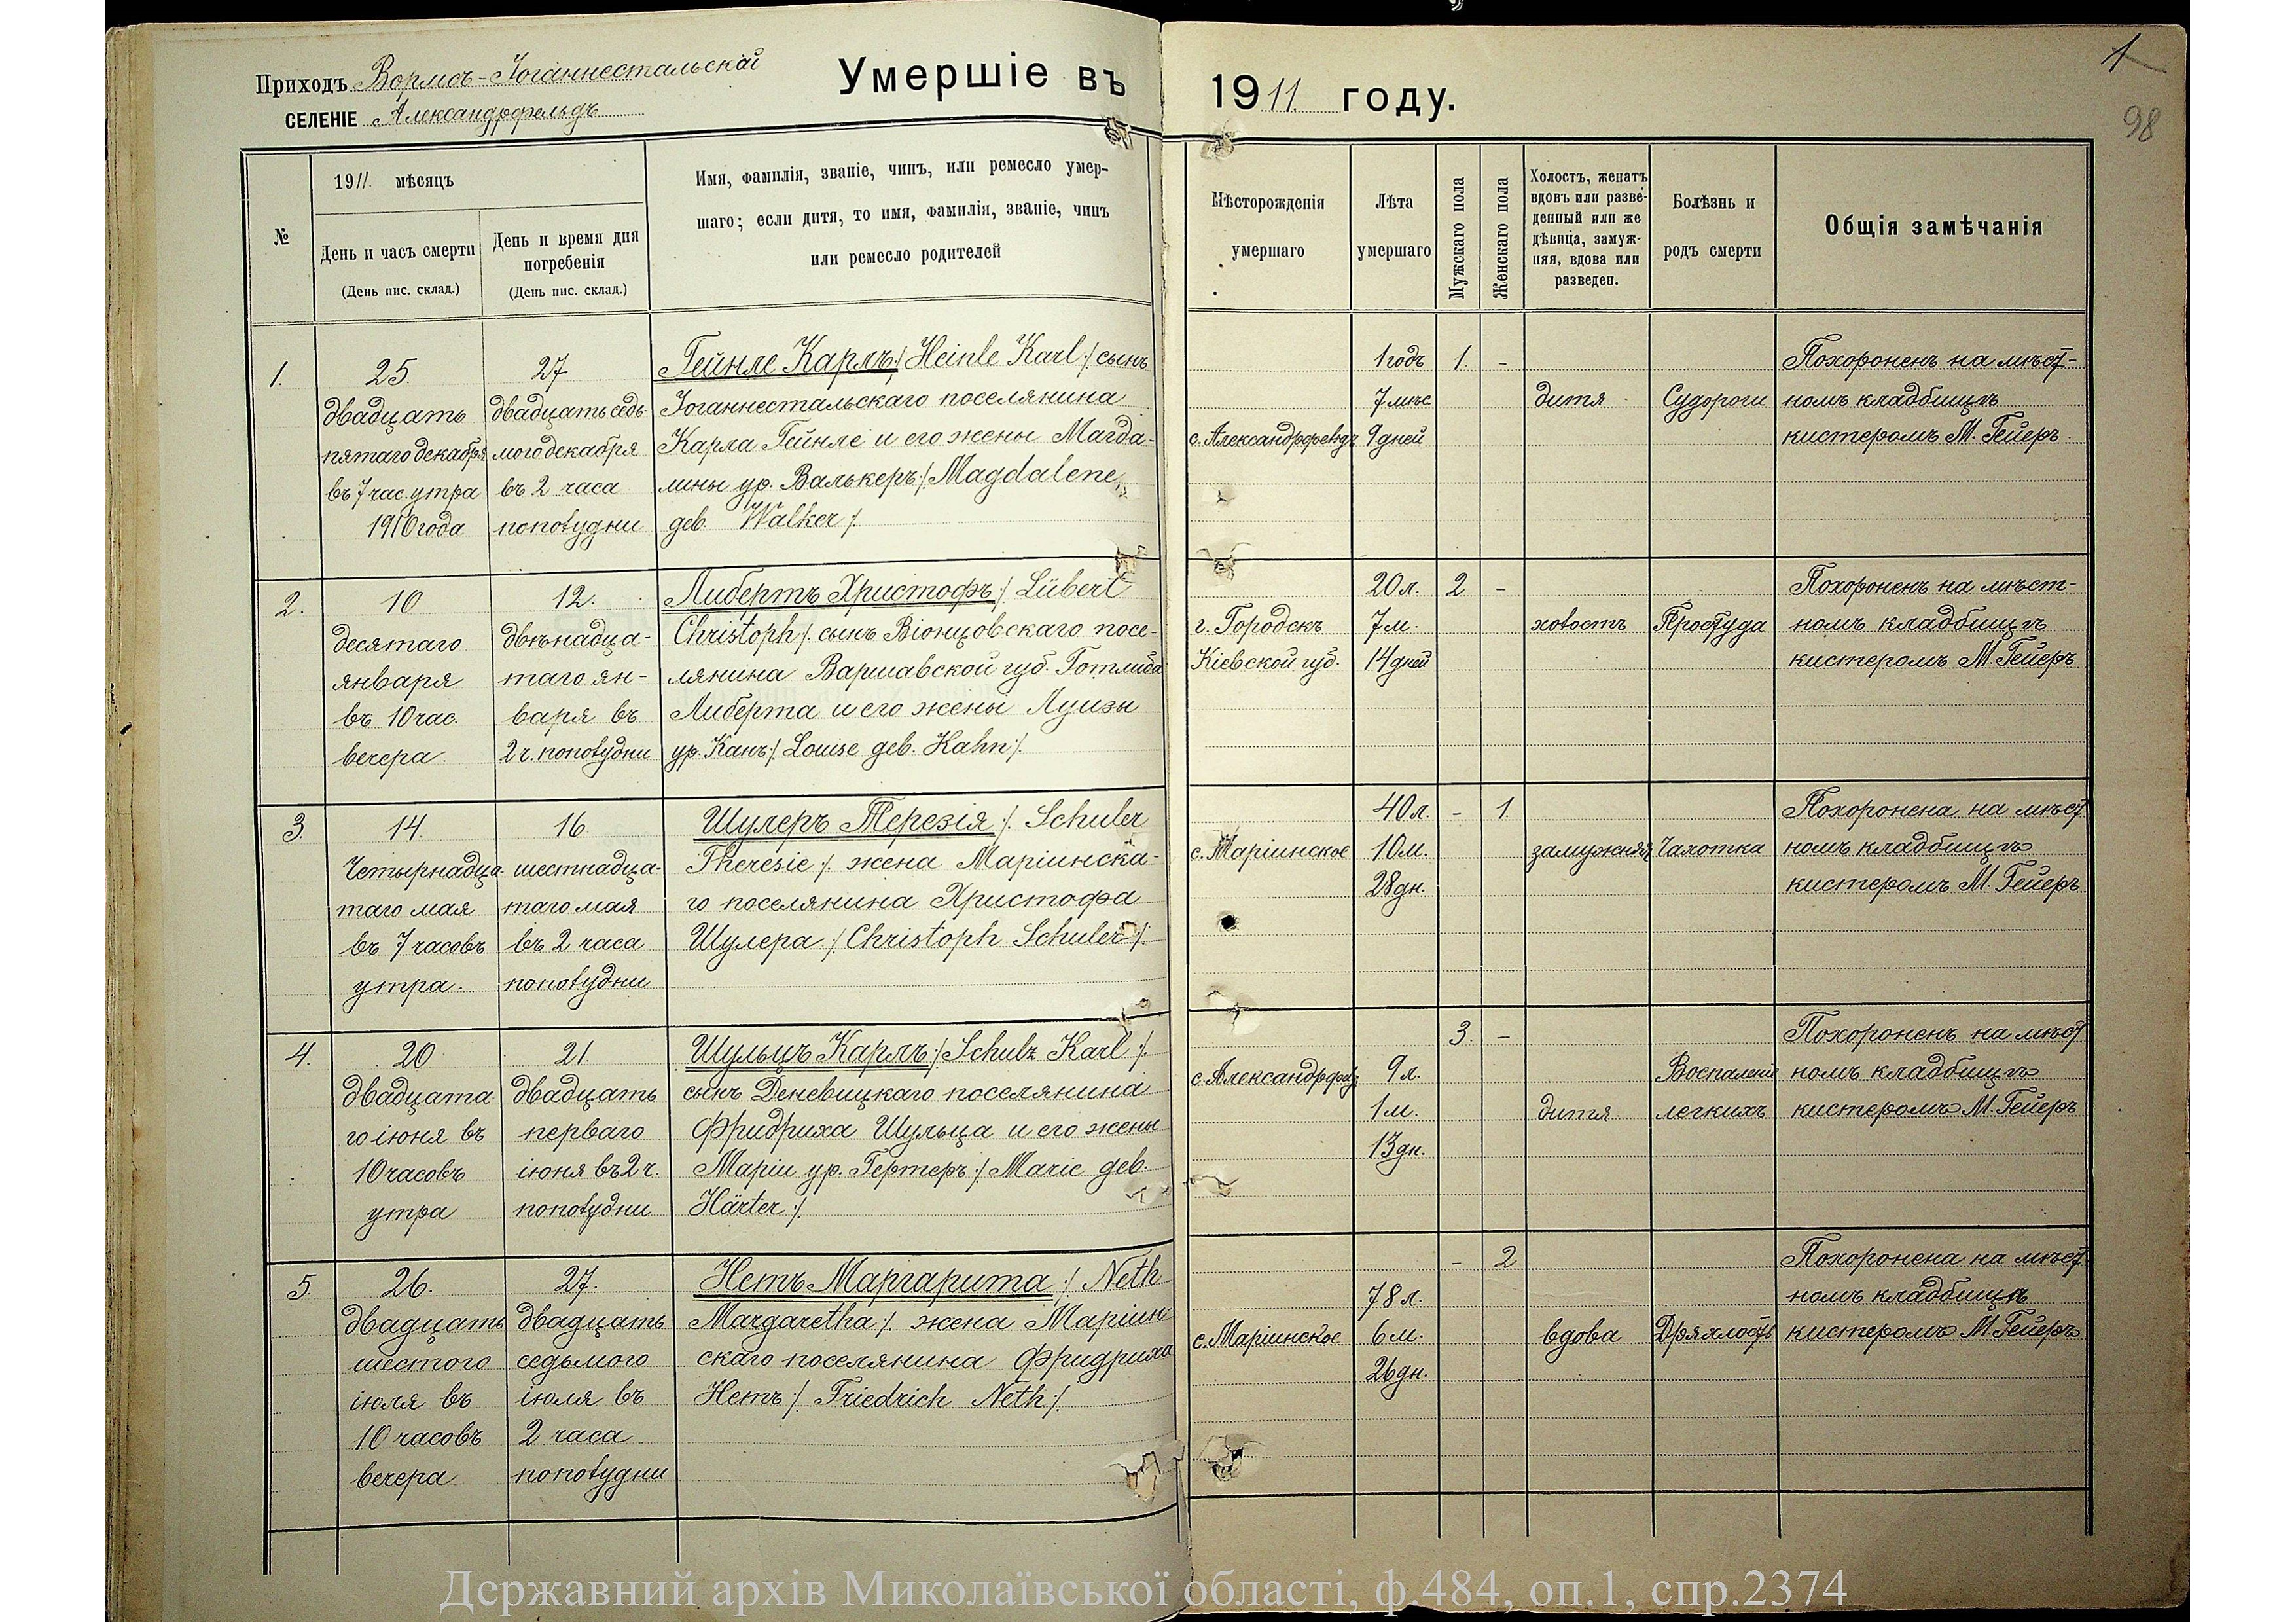 Приходъ Вормсъ-Іоганнестальскій
СЕЛЕНІЕ Александрфельдъ
Умершіе въ 1911 году.
1
98
№
1911 мѣсяцъ
День и часъ смерти
(День пис. склад.)
День и время дня
погребенія
(День пис. склад.)
Имя, фамилія, званіе, чинъ, или ремесло умер-
шаго; если дитя, то имя, фамилія, званіе, чинъ
или ремесло родителей
Мѣсторожденія
умершаго
Лѣта
умершаго
Мужскаго пола
Женскаго пола
Холостъ, женатъ
вдовъ или разве-
денный или же
дѣвица, замуж-
няя, вдова или
разведен.
Болѣзнь и
родъ смерти
Общія замѣчанія
1.
25.
двадцать
пятаго декабря
въ 7 час. утра
1910 года
27
двадцать седь-
мого декабря
въ 2 часа
пополудни
Гейнле Карлъ /: Heinle Karl :/ сынъ
Іоганнестальскаго поселянина
Карла Гейнле и его жены Магда-
лины ур. Валькеръ /: Magdalene
geb. Walker :/
с. Александрфельдъ
1 годъ
7 мѣс
9 дней
1.
-
дитя
Судороги
Похороненъ на мѣст-
номъ кладбищѣ
кистеромъ М. Гейеръ.
2.
10
десятаго
января
въ 10 час.
вечера.
12.
двѣнадца-
таго ян-
варя въ
2 ч. пополудни
Либертъ Христофъ /: Lübert
Christoph :/ сынъ Віонцовскаго посе-
лянина Варшавской губ. Готлиба
Либерта и его жены Луизы
ур. Канъ /: Louise geb. Kahn :/
г. Городскъ
Кіевской губ.
20 л.
7 м.
14 дней
2
-
холостъ
Простуда
Похороненъ на мѣст-
номъ кладбищѣ
кистеромъ М. Гейеръ
3.
14.
Четырнадца-
таго мая
въ 7 часовъ
утра.
16
шестнадца-
таго мая
въ 2 часа
пополудни
Шулеръ Терезія /: Schuler
Theresie :/ жена Маріинска-
го поселянина Христофа
Шулера /: Christoph Schuler :/
с. Маріинское
40 л.
10 м.
28 дн.
-
1.
замужняя
Чахотка
Похоронена на мѣст-
номъ кладбищѣ
кистеромъ М. Гейеръ
4.
20
двадцата
го іюня въ
10 часовъ
утра
21.
двадцать
перваго
іюня въ 2 ч.
пополудни
Шульцъ Карлъ /: Schulz Karl :/
сынъ Деневицкаго поселянина
Фридриха Шульца и его жены
Маріи ур. Гертеръ /: Marie geb.
Härter :/
с. Александрфельдъ
9 л.
1 м.
13 дн.
3.
-
дитя
Воспаленіе
легкихъ
Похороненъ на мѣст
номъ кладбищѣ
кистеромъ М. Гейеръ
5.
26.
двадцать
шестого
іюля въ
10 часовъ
вечера
27.
двадцать
седьмого
іюля въ
2 часа
пополудни
Нетъ Маргарита /: Neth
Margaretha :/ жена Маріин-
скаго поселянина Фридриха
Нетъ /: Friedrich Neth :/
с. Маріинское
78 л.
6 м.
26 дн.
-
2
вдова
Дряхлость
Похоронена на мѣст-
номъ кладбищѣ
кистеромъ М. Гейеръ
Державний архів Миколаївської області, ф.484, оп.1, спр.2374